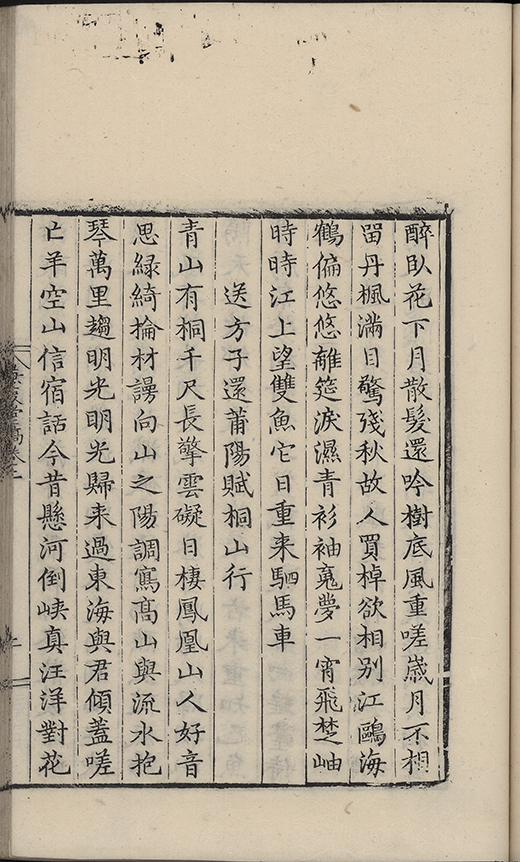 醉臥花下月散髮還吟樹底風重嗟歲月不相
畱丹楓滿目驚殘秋故人買棹欲相别江鷗海
鶴偏悠悠離筵淚濕青衫袖䰟夢一宵飛楚岫
時時江上望雙魚它日重来駟馬車
送方子還莆陽賦桐山行
青山有桐千尺長擎雲礙日棲鳳凰山人好音
思緑綺掄材謾向山之陽調寫髙山與流水抱
琴萬里趨明光明光歸来過東海與君傾葢嗟
亡羊空山信宿話今昔懸河倒峡真汪洋對花